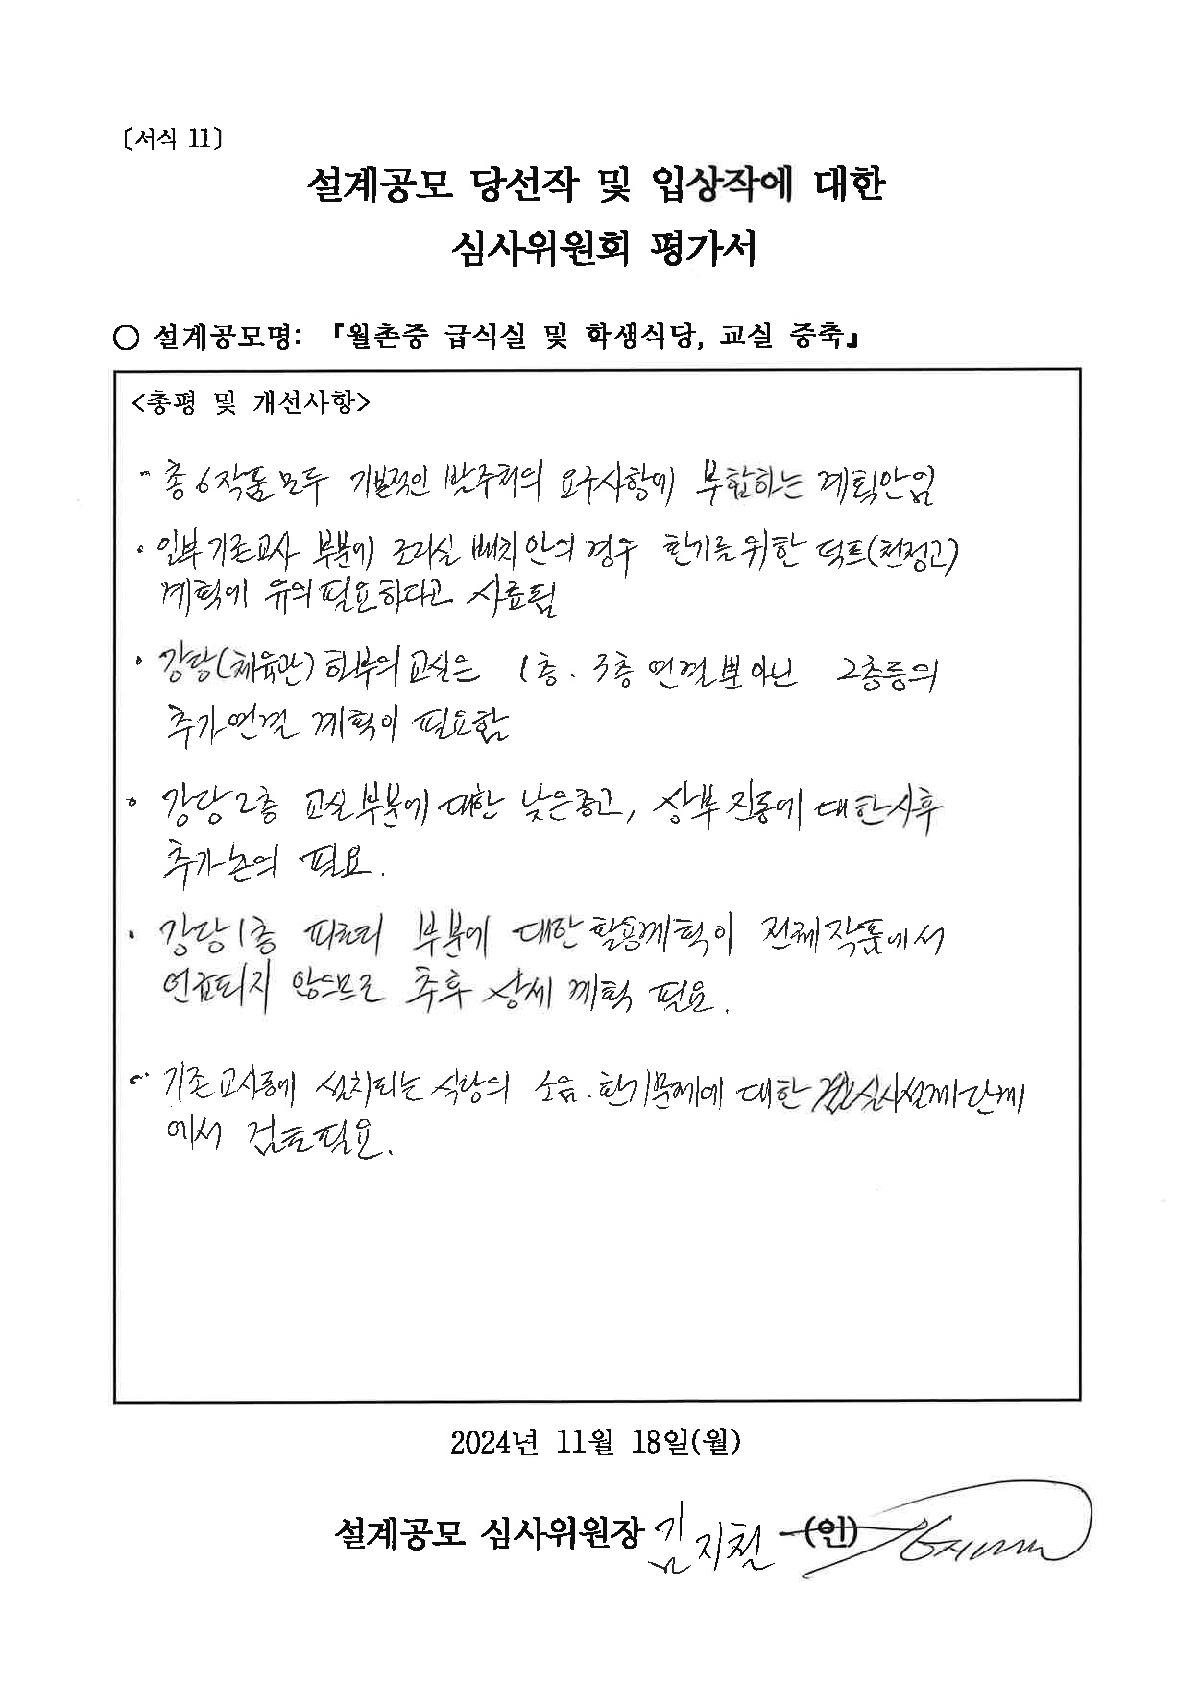 〔서식 11〕
설계공모 당선작 및 입상작에 대한
심사위원회 평가서
○ 설계공모명: 『월촌중 급식실 및 학생식당, 교실 증축』
<총평 및 개선사항>
- 총 6작품 모두 기본적인 발주처의 요구사항에 부합하는 계획안임
· 일부 기존교사 부분에 조리실 배치안의 경우 환기를 위한 덕트(천정고)
계획에 유의 필요하다고 사료됨
· 강당(체육관) 하부의 교실은 1층·3층 연결뿐아닌 2층등의
추가연결 계획이 필요함
· 강당 2층 교실부분에 대한 낮은층고, 상부 진동에 대한 사후
추가논의 필요.
· 강당 1층 피로티 부분에 대한 활용계획이 전체작품에서
언급되지 않으므로 추후 상세 계획 필요.
· 기존교사동에 설치되는 식당의 소음·환기문제에 대한 실시설계단계
에서 검토필요.
2024년 11월 18일(월)
설계공모 심사위원장 김지철 (인)